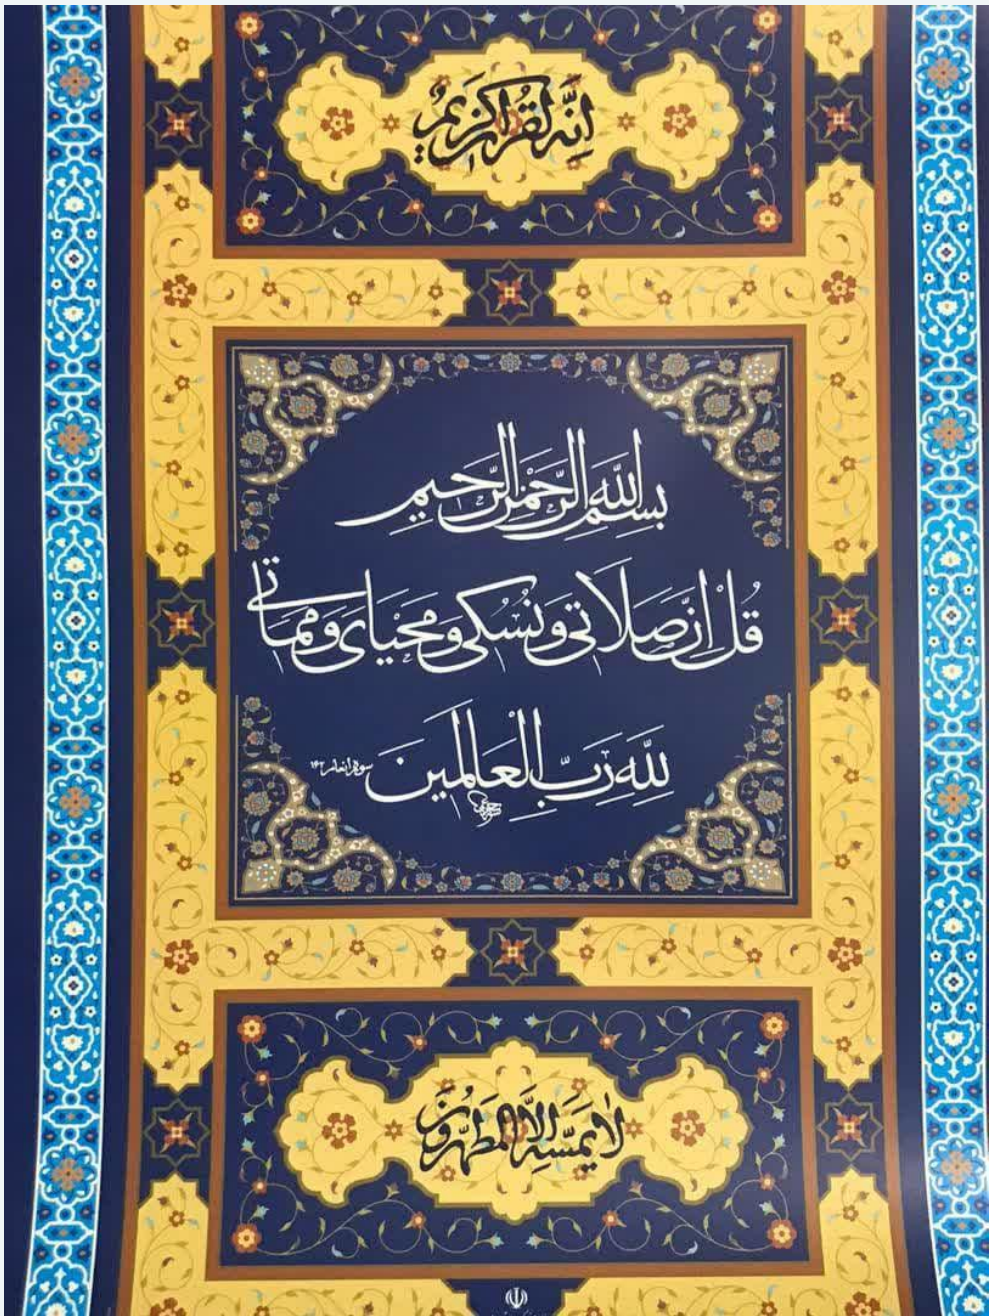 إنه لقرآن کریم
بسم الله الرحمن الرحیم
قُل اِنّ صَلَاتی وَ نُسُکی وَ مَحْیایَ وَ مَمَاتی
لِلّهِ رَبِّ الْعَالَمینَ سوره انعام ۱۶۲
لا یمسه إلا المطهرون